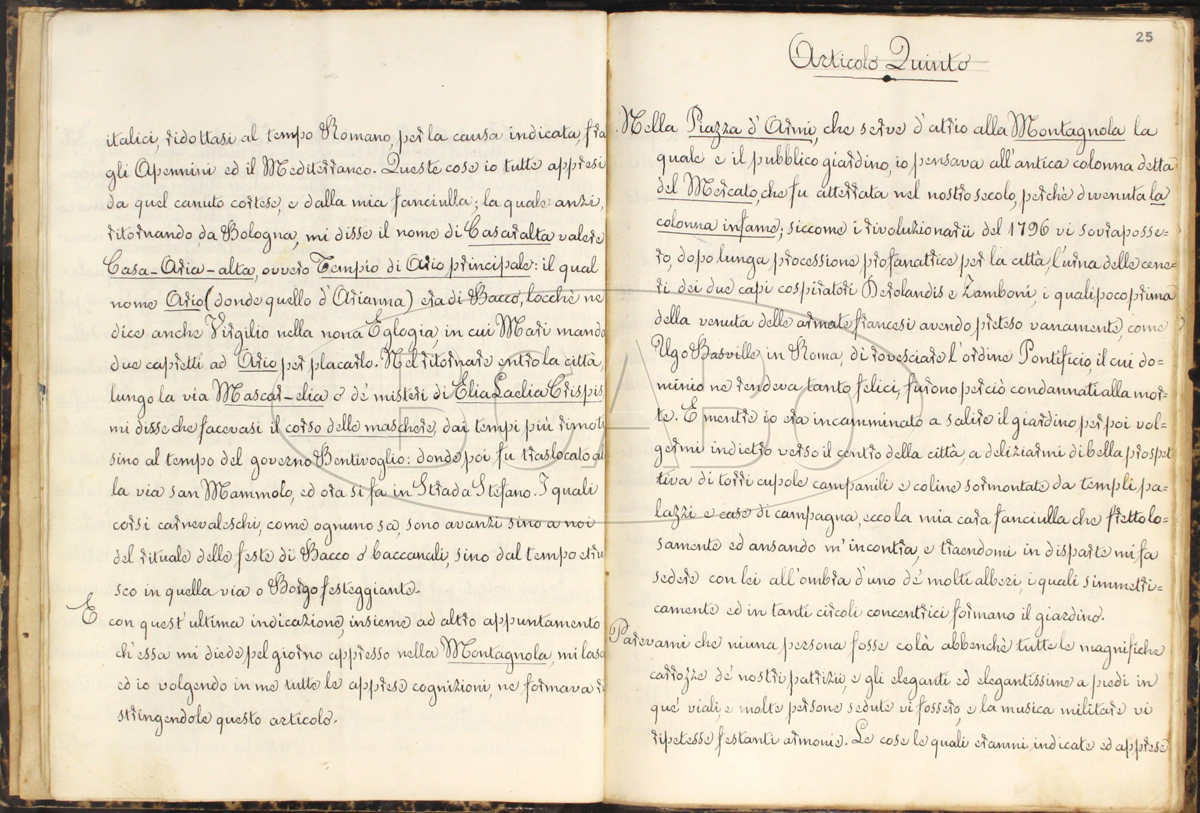 italici, ridottasi al tempo Romano, per la causa indicata, fra
gli Apennini ed il Mediterraneo. Queste cose io tutte appresi
da quel canuto cortese, e dalla mia fanciulla; la quale anzi,
ritornando da Bologna, mi disse il nome di Casaralta valere
Casa-Aria-alta, ovvero Tempio di Ario principale: il qual
nome Ario (donde quello d'Arianna) era di Bacco, locchè ne
dice anche Virgilio nella nona Eglogia, in cui Mari mando
due capretti ad Ario per placarlo. Nel ritornare entro la città,
lungo la via Mascar-elia o de' misteri di Elia Laelia Crispis
mi disse che facevasi il corso delle maschere, dai tempi più rimoti
sino al tempo del governo Bentivoglio: donde poi fu traslocato al
la via san Mammolo, ed ora si fa in Strada Stefano. I quali
corsi carnevaleschi, come ognuno sa, sono avanzi sino a noi
del rituale delle feste di Bacco o baccanali, sino dal tempo etru
sco in quella via o Borgo festeggiante.
E con quest'ultima indicazione, insieme ad altro appuntamento
ch'essa mi diede pel giorno appresso nella Montagnola, mi lasc
ed io volgendo in me tutte le apprese cognizioni, ne formava ri
stringendole questo articolo.
25
Articolo Quinto
Nella Piazza d'Armi, che serve d'atrio alla Montagnola la
quale e il pubblico giardino, io pensava all'antica colonna detta
del Mercato, che fu atterrata nel nostro secolo, perchè divenuta la
colonna infame; siccome i rivoluzionarii del 1796 vi sovrapposse=
ro, dopo lunga processione profanatrice per la città, l'urna delle cene=
ri dei due capi cospiratori Derolandis e Zamboni, i quali poco prima
della venuta delle armate francesi avendo preteso vanamente, come
Ugo Basville in Roma, di rovesciare l'ordine Pontificio, il cui do=
minio ne rendeva tanto felici, furono perciò condannati alla mor=
te. E mentre io era incamminato a salire il giardino per poi vol=
germi indietro verso il centro della città, a deliziarmi di bella prospet
tiva di torri cupole campanili e coline sormontate da templi pa=
lazzi e case di campagna, ecco la mia cara fanciulla che frettolo=
samente ed ansando m'incontra, e traendomi in disparte mi fa
sedere con lei all'ombra d'uno de' molti alberi, i quali simmetri=
camente ed in tanti circoli concentrici formano il giardino.
Parevami che niuna persona fosse colà abbenchè tutte le magnifiche
carrozze de' nostri patrizii, e gli eleganti ed elegantissime a piedi in
que' viali, e molte persone sedute vi fossero, e la musica militare vi
ripetesse festanti armonie. Le cose le quali eranmi indicate ed apprese